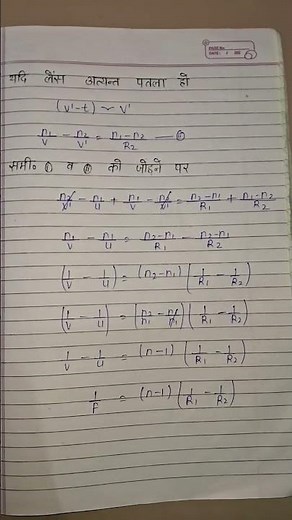 यदि लेंस अत्यन्त पतला हो
(v'-t) ~ v'
n₁/v - n₂/v' = n₁-n₂/R₂ —
समी० ① व ② को जोड़ने पर
n₂/v' - n₁/u + n₁/v - n₂/v' = n₂-n₁/R₁ + n₁-n₂/R₂
n₁/v - n₁/u = n₂-n₁/R₁ - n₂-n₁/R₂
(1/v - 1/u) = (n₂-n₁) (1/R₁ - 1/R₂)
(1/v - 1/u) = (n₂/n₁ - n₁/n₁) (1/R₁ - 1/R₂)
1/v - 1/u = (n-1) (1/R₁ - 1/R₂)
1/F = (n-1) (1/R₁ - 1/R₂)